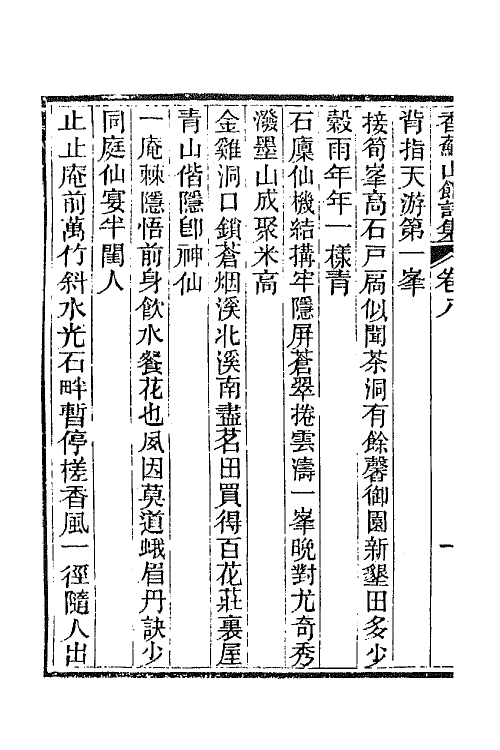 香蘇山館詩集 卷八 一
背指天游第一峯
接筍峯高石戸扃似聞茶洞有餘馨御園新墾田多少
穀雨年年一樣青
石廩仙機結搆牢隱屏蒼翠捲雲濤一峯晚對尤奇秀
潑墨山成聚米高
金雞洞口鎖蒼烟溪北溪南盡茗田買得百花莊裏屋
青山偕隱卽神仙
一庵棘隱悟前身飲水餐花也夙因莫道蛾眉丹訣少
同庭仙宴半閨人
止止庵前萬竹斜水光石畔暫停槎香風一徑隨人出